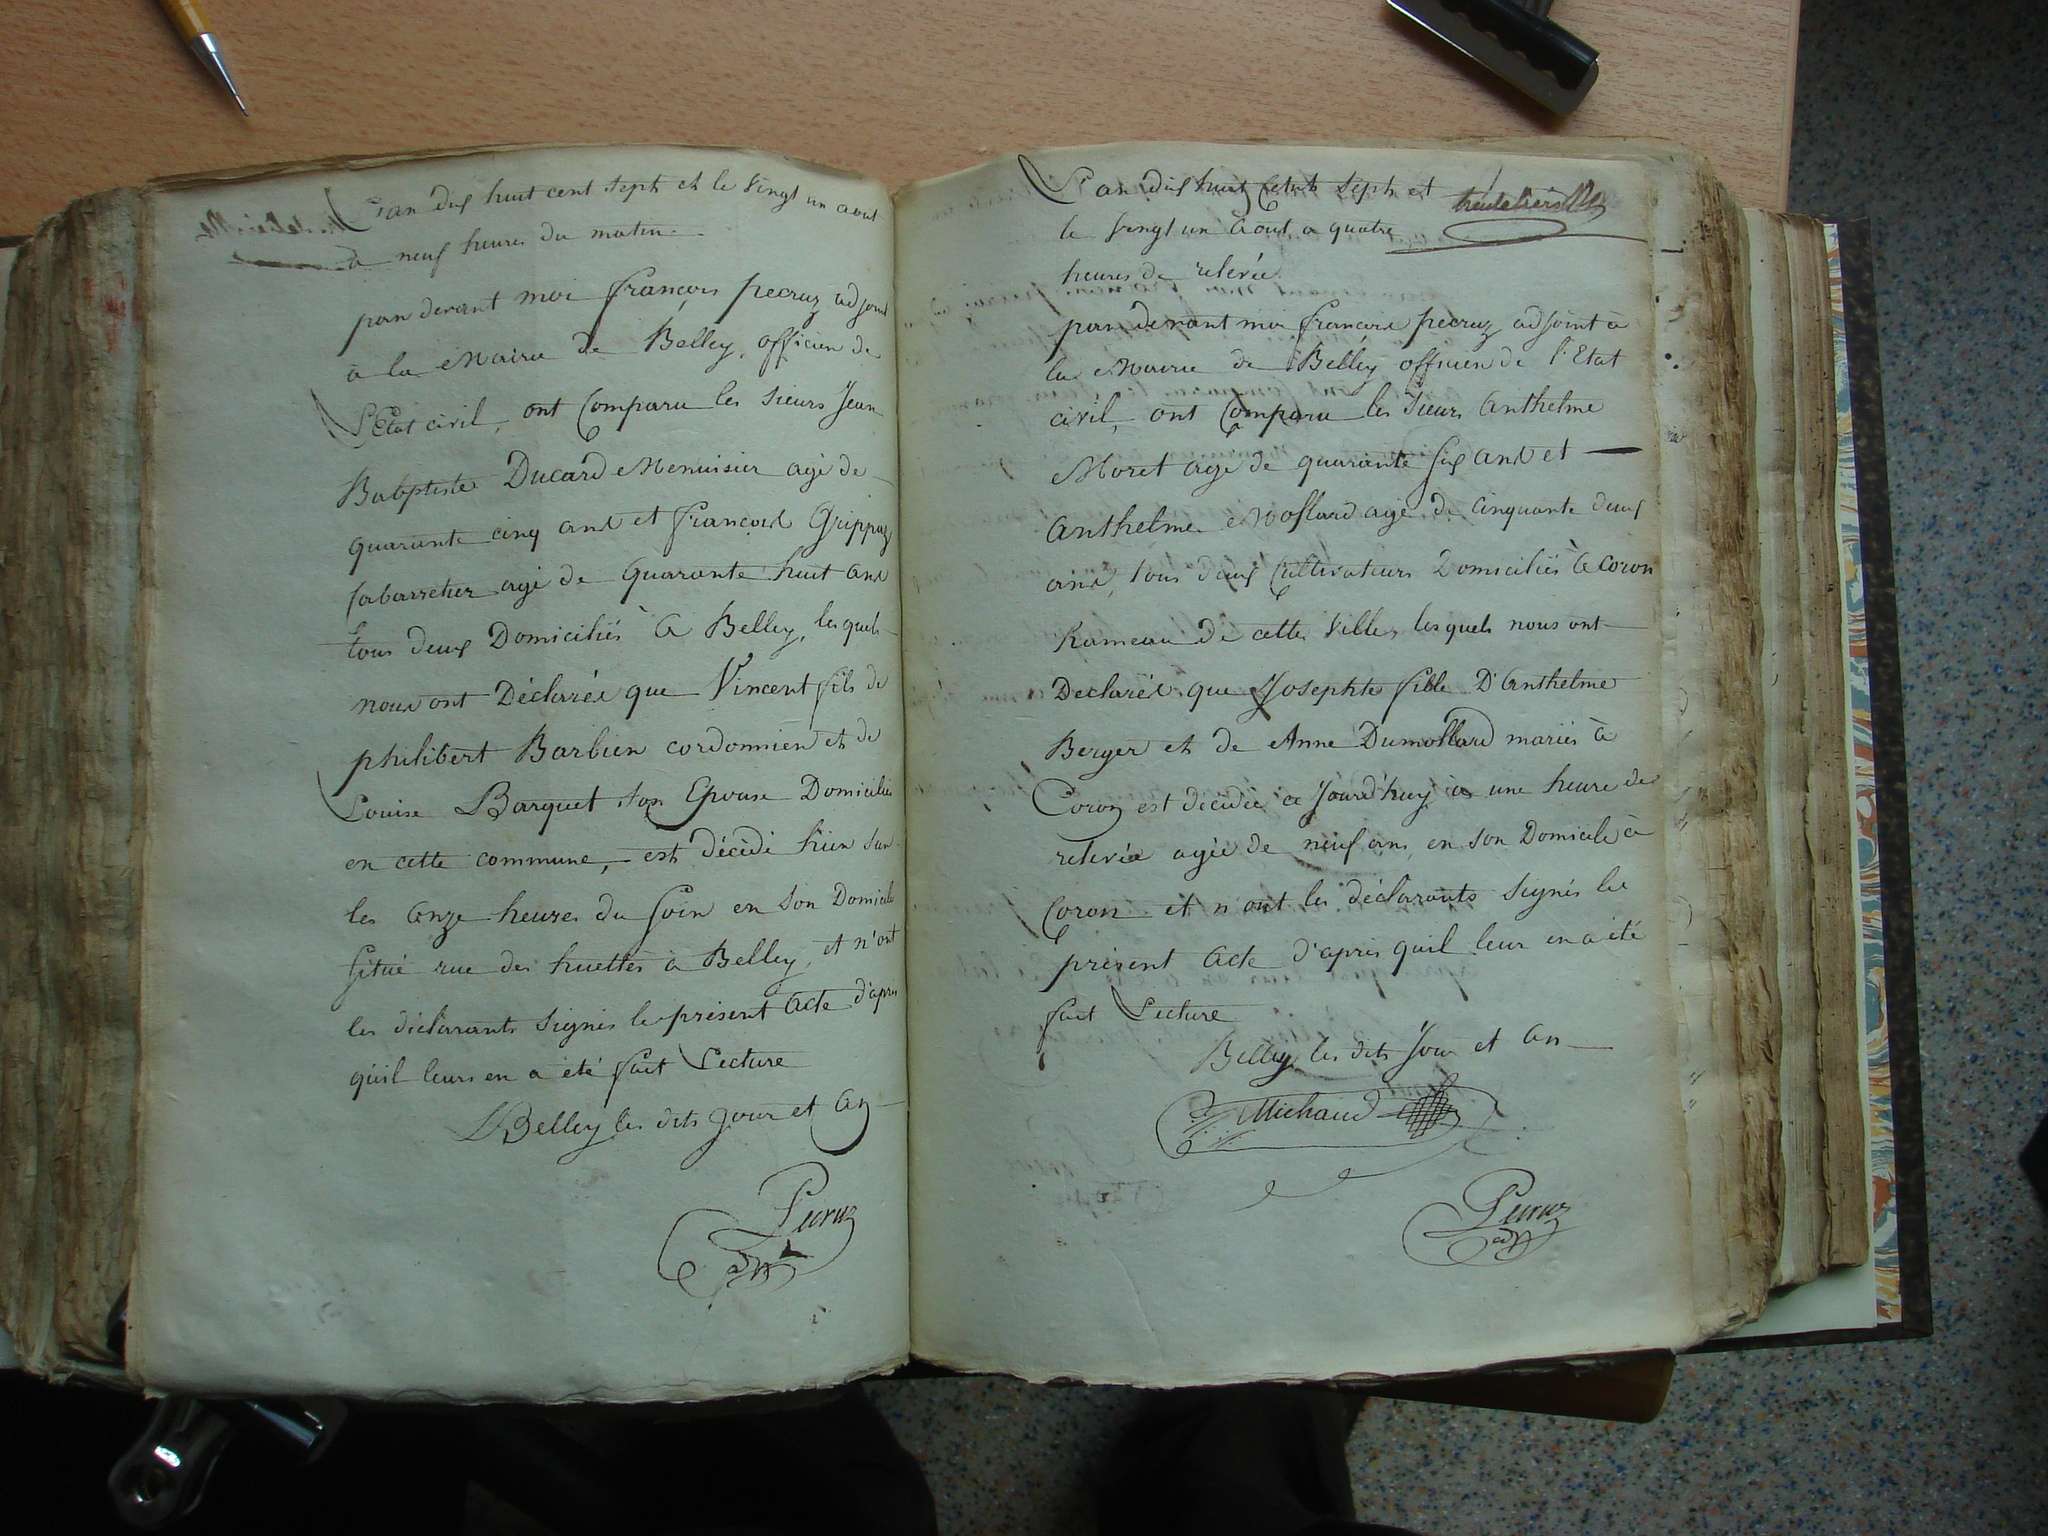 L'an dix huit cent sept et le vingt un aout
à neuf heures du matin
par devant moi françois pecruz adjoint
à la Mairie de Belley, officier de
L'Etat civil, ont Comparu les sieurs Jean
Babptiste Ducard Menuisier agé de
quarante cinq ans et françois Grippaz
Cabarretier agé de Quarante huit ans
tous deux Domiciliés à Belley, lesquels
nous ont Déclarés que Vincent fils de
philibert Barbier cordonnier et de
Louise Barquet son Epouse Domiciliés
en cette commune, est décédé hier sur
les onze heures du soir en son Domicile
situé rue des huettes a Belley, et n'ont
les déclarants signés le présent Acte d'apres
qu'il leurs en a été fait Lecture
Belley les dits jour et an
Pecruz
adjt
L'an dix huit Cent sept et
le vingt un Aout a quatre
heures de relevée
par devant moi françois pecruz adjoint à
la Mairie de Belley officier de l'Etat
civil, ont Comparu les sieurs Anthelme
Moret agé de quarante six ans et
Anthelme Mollard agé de cinquante deux
ans, tous deux Cultivateurs Domiciliés à Coron
hameau de cette Ville, lesquels nous ont
Declarés que Josephte fille D'Anthelme
Berger et de Anne Dumollard mariés à
Coron est décédée ce Jourd'huy à une heure de
relevée agée de neuf ans en son Domicile à
Coron et n'ont les déclarants signés le
présent Acte d'apres qu'il leur en a été
fait Lecture
Belley les dits Jour et An
Michaud
Pecruz
adjt